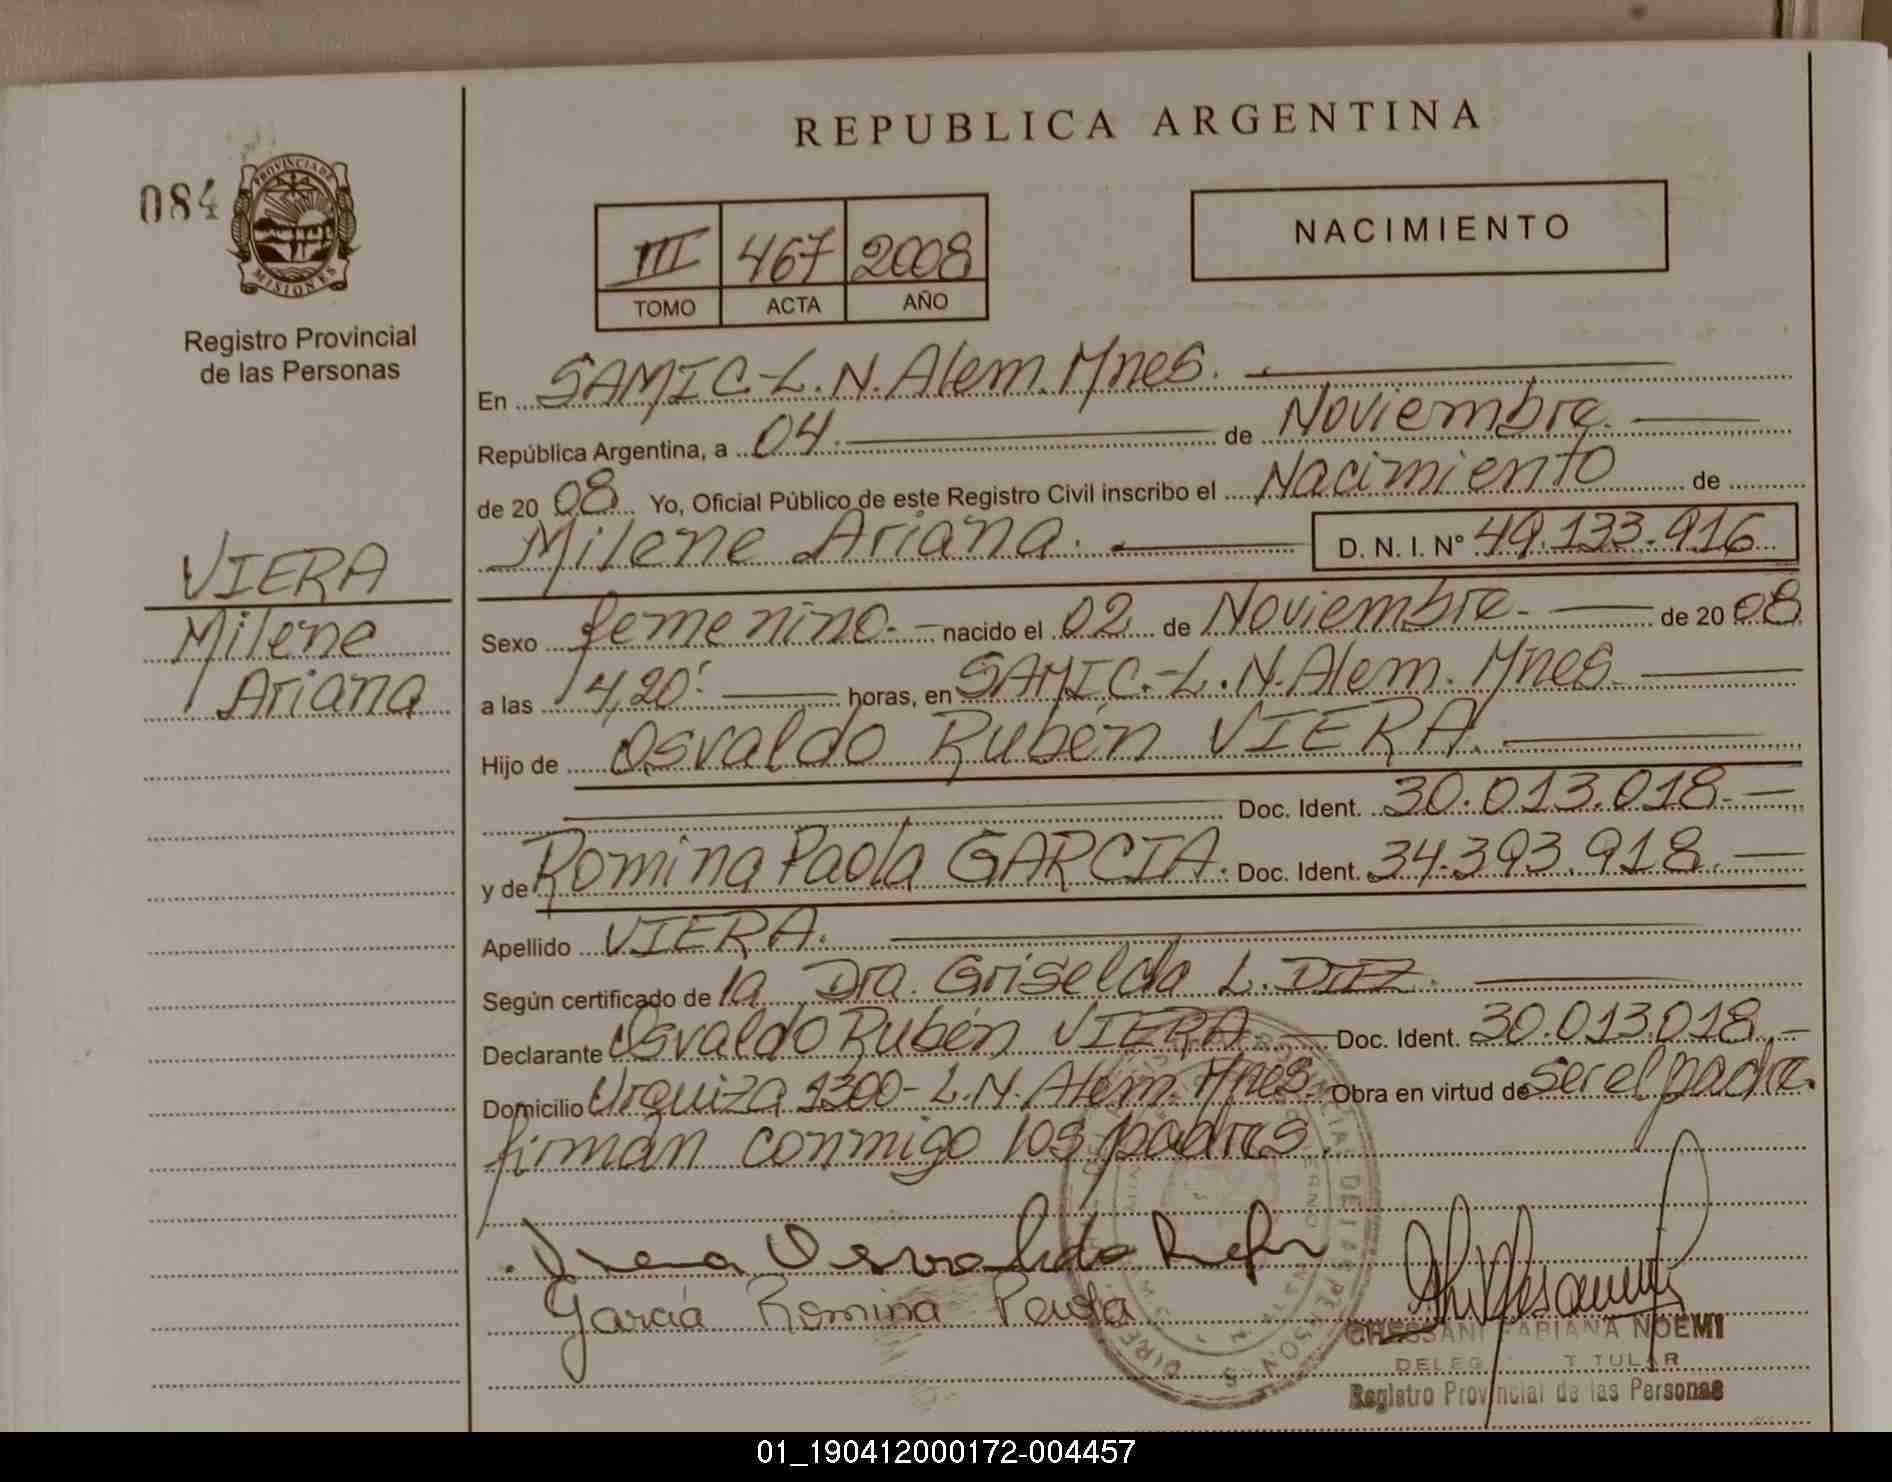 REPUBLICA ARGENTINA
084
PROVINCIA DE
MISIONES
Registro Provincial
de las Personas
III 467 2008
TOMO ACTA AÑO
NACIMIENTO
VIERA
Milene
Ariana
En SAMIC-L.N.Alem.Mnes.
República Argentina, a 04. de Noviembre.
de 2008 Yo, Oficial Público de este Registro Civil inscribo el Nacimiento de
Milene Ariana. D. N. I. Nº 49.133.916
Sexo femenino.- nacido el 02 de Noviembre.- de 2008
a las 14,20' horas, en SAMIC.-L.N.Alem. Mnes.
Hijo de Osvaldo Rubén VIERA.
Doc. Ident. 30.013.018.-
y de Romina Paola GARCIA. Doc. Ident. 34.393.918.-
Apellido VIERA.
Según certificado de la Dra. Griselda L. DIEZ.
Declarante Osvaldo Rubén VIERA Doc. Ident. 30.013.018.-
Domicilio Urquiza 1300- L.N. Alem. Mnes. Obra en virtud de ser el padre.
firman conmigo los padres.
Osvaldo
García Romina Paola
FABIANA NOEMI
DELEG TITULAR
Registro Provincial de las Personas
01_190412000172-004457